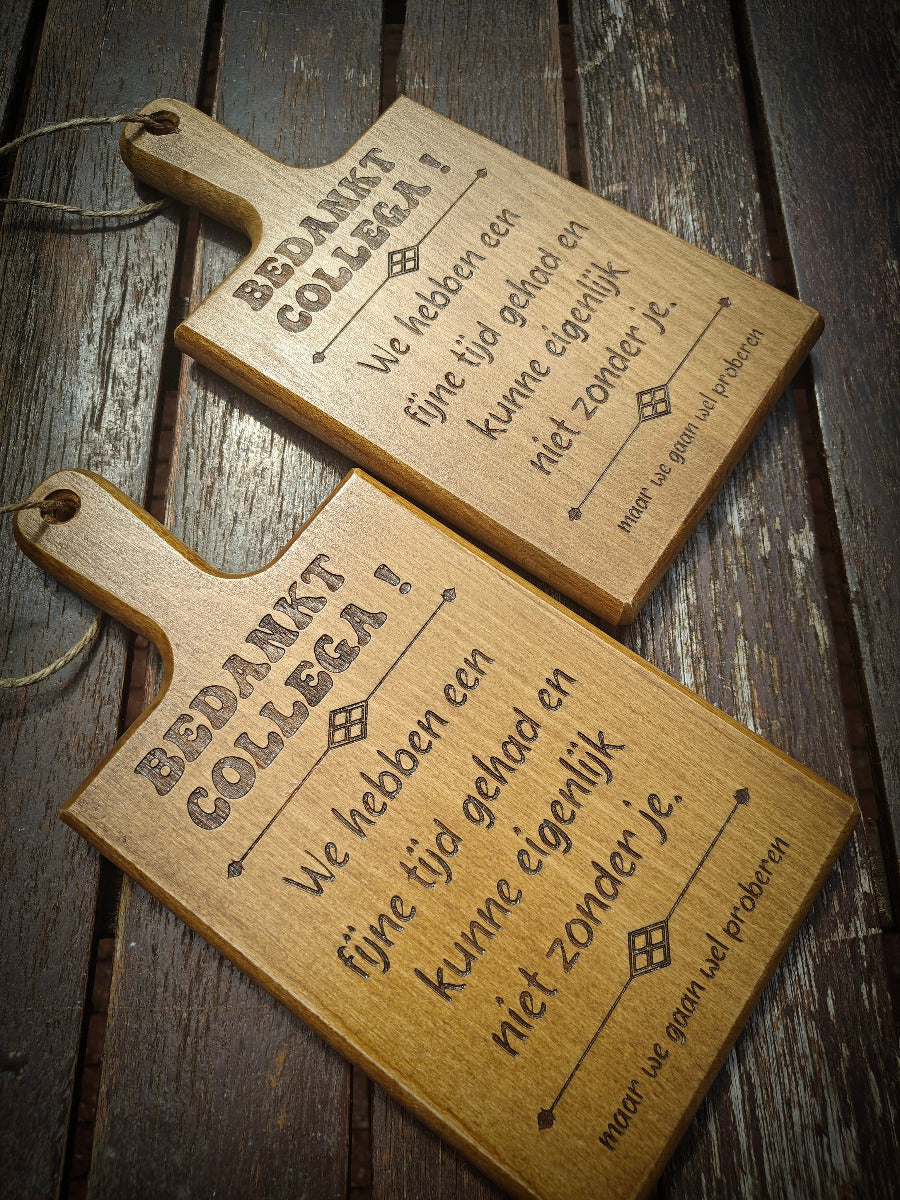 BEDANKT
COLLEGA !
We hebben een
fijne tijd gehad en
kunne eigenlijk
niet zonder je.
maar we gaan wel proberen
BEDANKT
COLLEGA !
We hebben een
fijne tijd gehad en
kunne eigenlijk
niet zonder je.
maar we gaan wel proberen